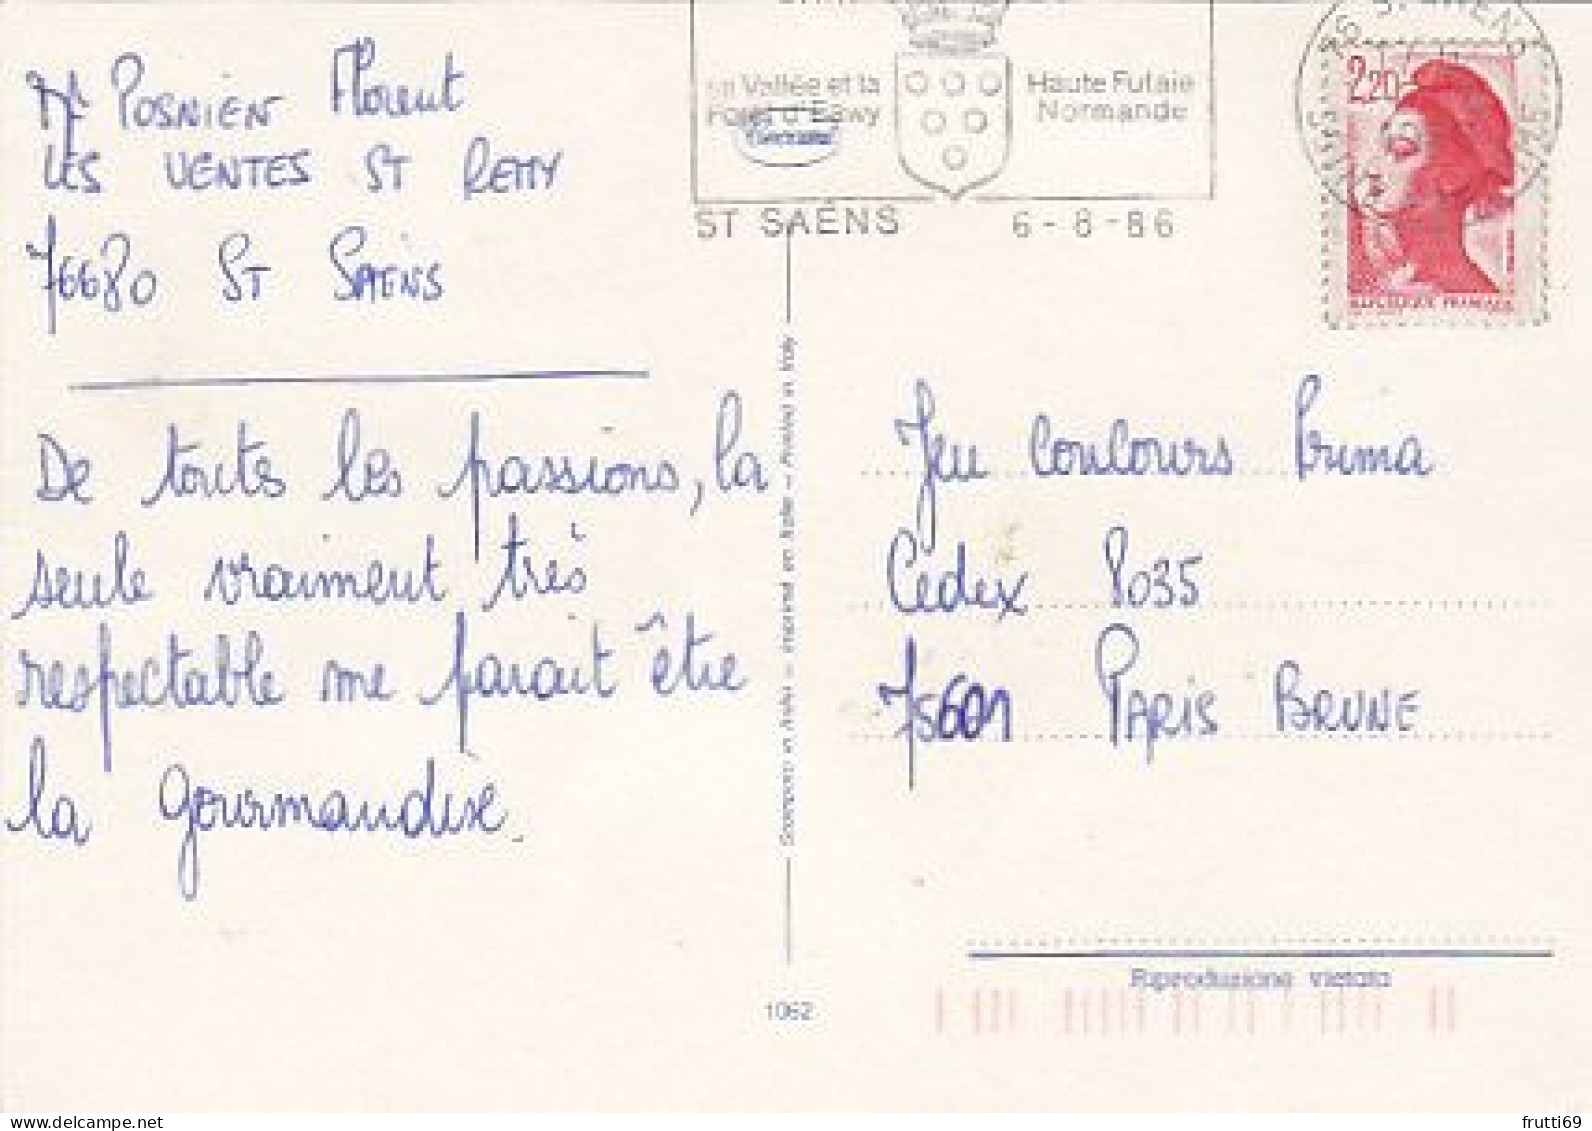 Mr POSNIEN Florent
LES VENTES ST REMY
76680 ST SAENS
De toutes les passions, la
seule vraiment très
respectable me parait être
la gourmandise.
la Vallée et la
Forêt d'Eawy
Haute Futaie
Normande
ST SAËNS 6-8-86
2,20
Stampato in Italia - Imprimé en Italie - Printed in Italy
Jeu Concours Prima
Cedex 8035
75601 PARIS BRUNE
Riproduzione vietata
1062
frutti69